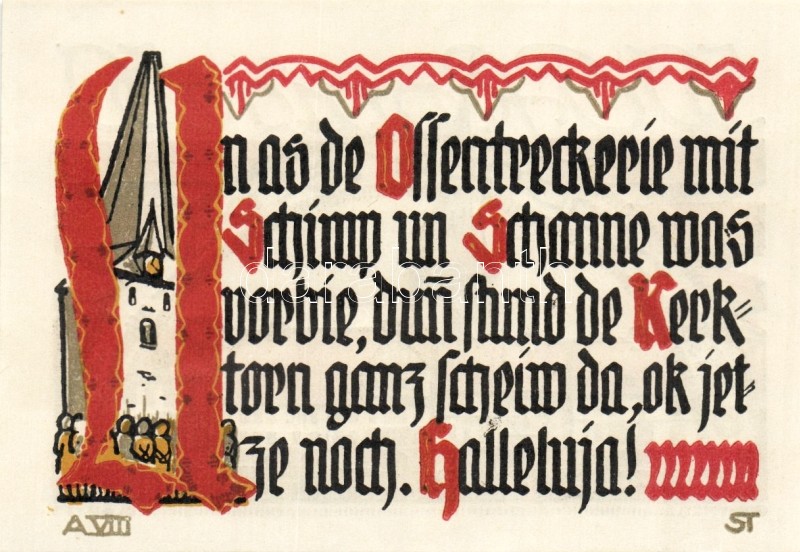 Un as de Ossentreckerie mit
Schimp un Schanne was
vörbie, dun̄ stund de Kerk=
torn ganz scheiw da, ok jet=
ze noch. Halleluja!
A VIII
ST
darabanth